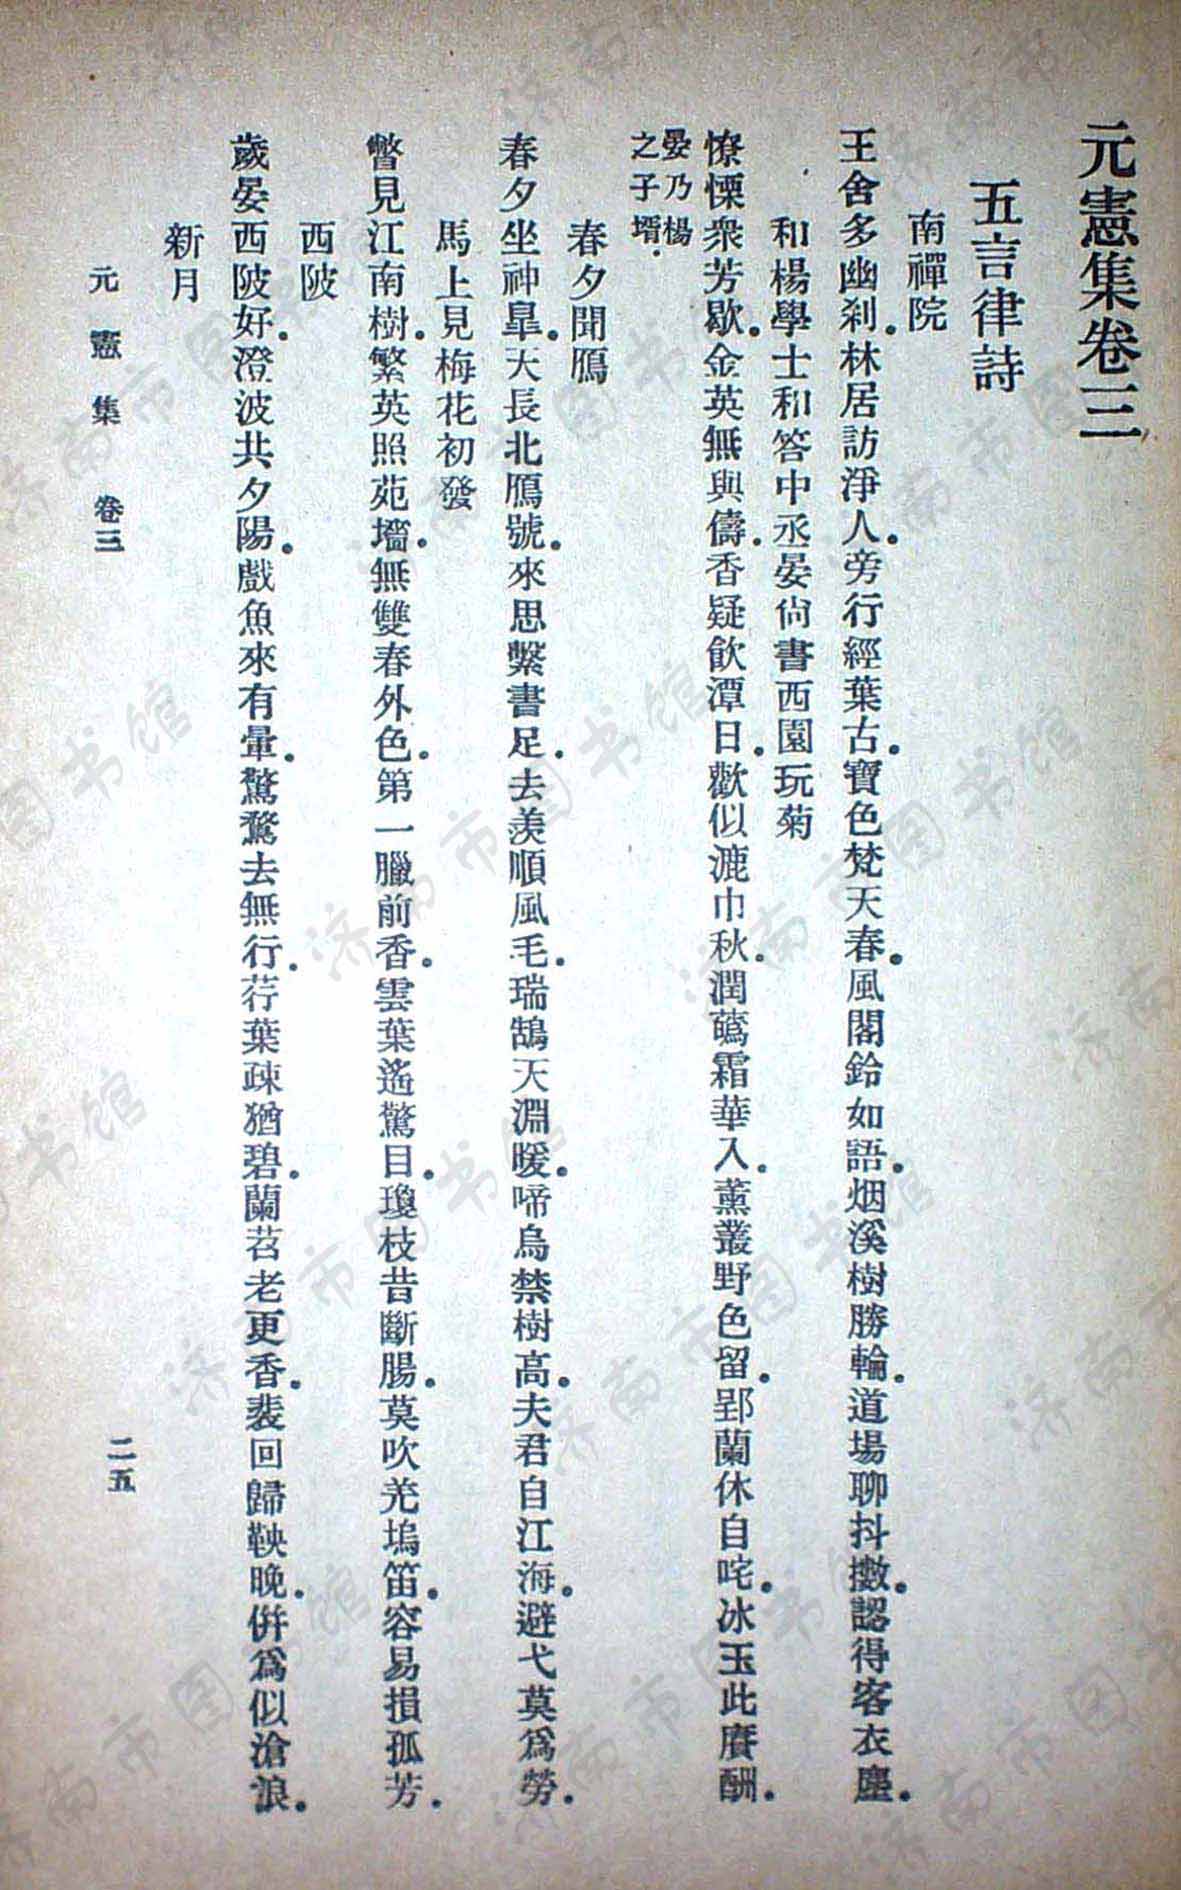 元憲集卷三
五言律詩
南禪院
王舍多幽刹。林居訪淨人。旁行經葉古。寶色梵天春。風閣鈴如語。烟溪樹勝輪。道場聊抖擻。認得客衣塵。
和楊學士和答中丞晏尙書西園玩菊
憭慄衆芳歇。金英無與儔。香疑飲潭日。歡似漉巾秋。潤蘤霜華入。薰叢野色留。郢蘭休自咤。冰玉此賡酬。
晏乃楊
之子壻。
春夕聞鴈
春夕坐神臯。天長北鴈號。來思繫書足。去羨順風毛。瑞鵠天淵暖。啼烏禁樹高。夫君自江海。避弋莫爲勞。
馬上見梅花初發
瞥見江南樹。繁英照苑墻。無雙春外色。第一臘前香。雲葉遙驚目。瓊枝昔斷腸。莫吹羌塢笛。容易損孤芳。
西陂
歲晏西陂好。澄波共夕陽。戲魚來有暈。驚鶩去無行。荇葉疎猶碧。蘭苕老更香。裴回歸鞅晚。併爲似滄浪。
新月
元憲集 卷三
二五
济南市图书馆